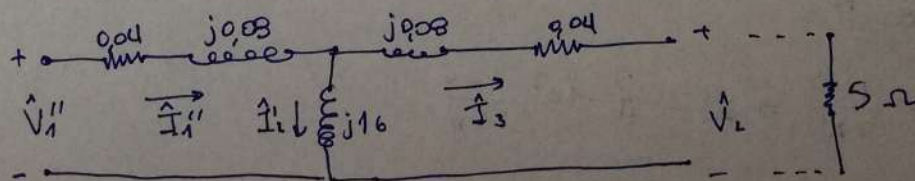 0,04 j0,08 j0,08 0,04
+ +
V̂₁'' Î₁'' Î₂' j16 Î₃ V̂₂ 5 Ω
- -